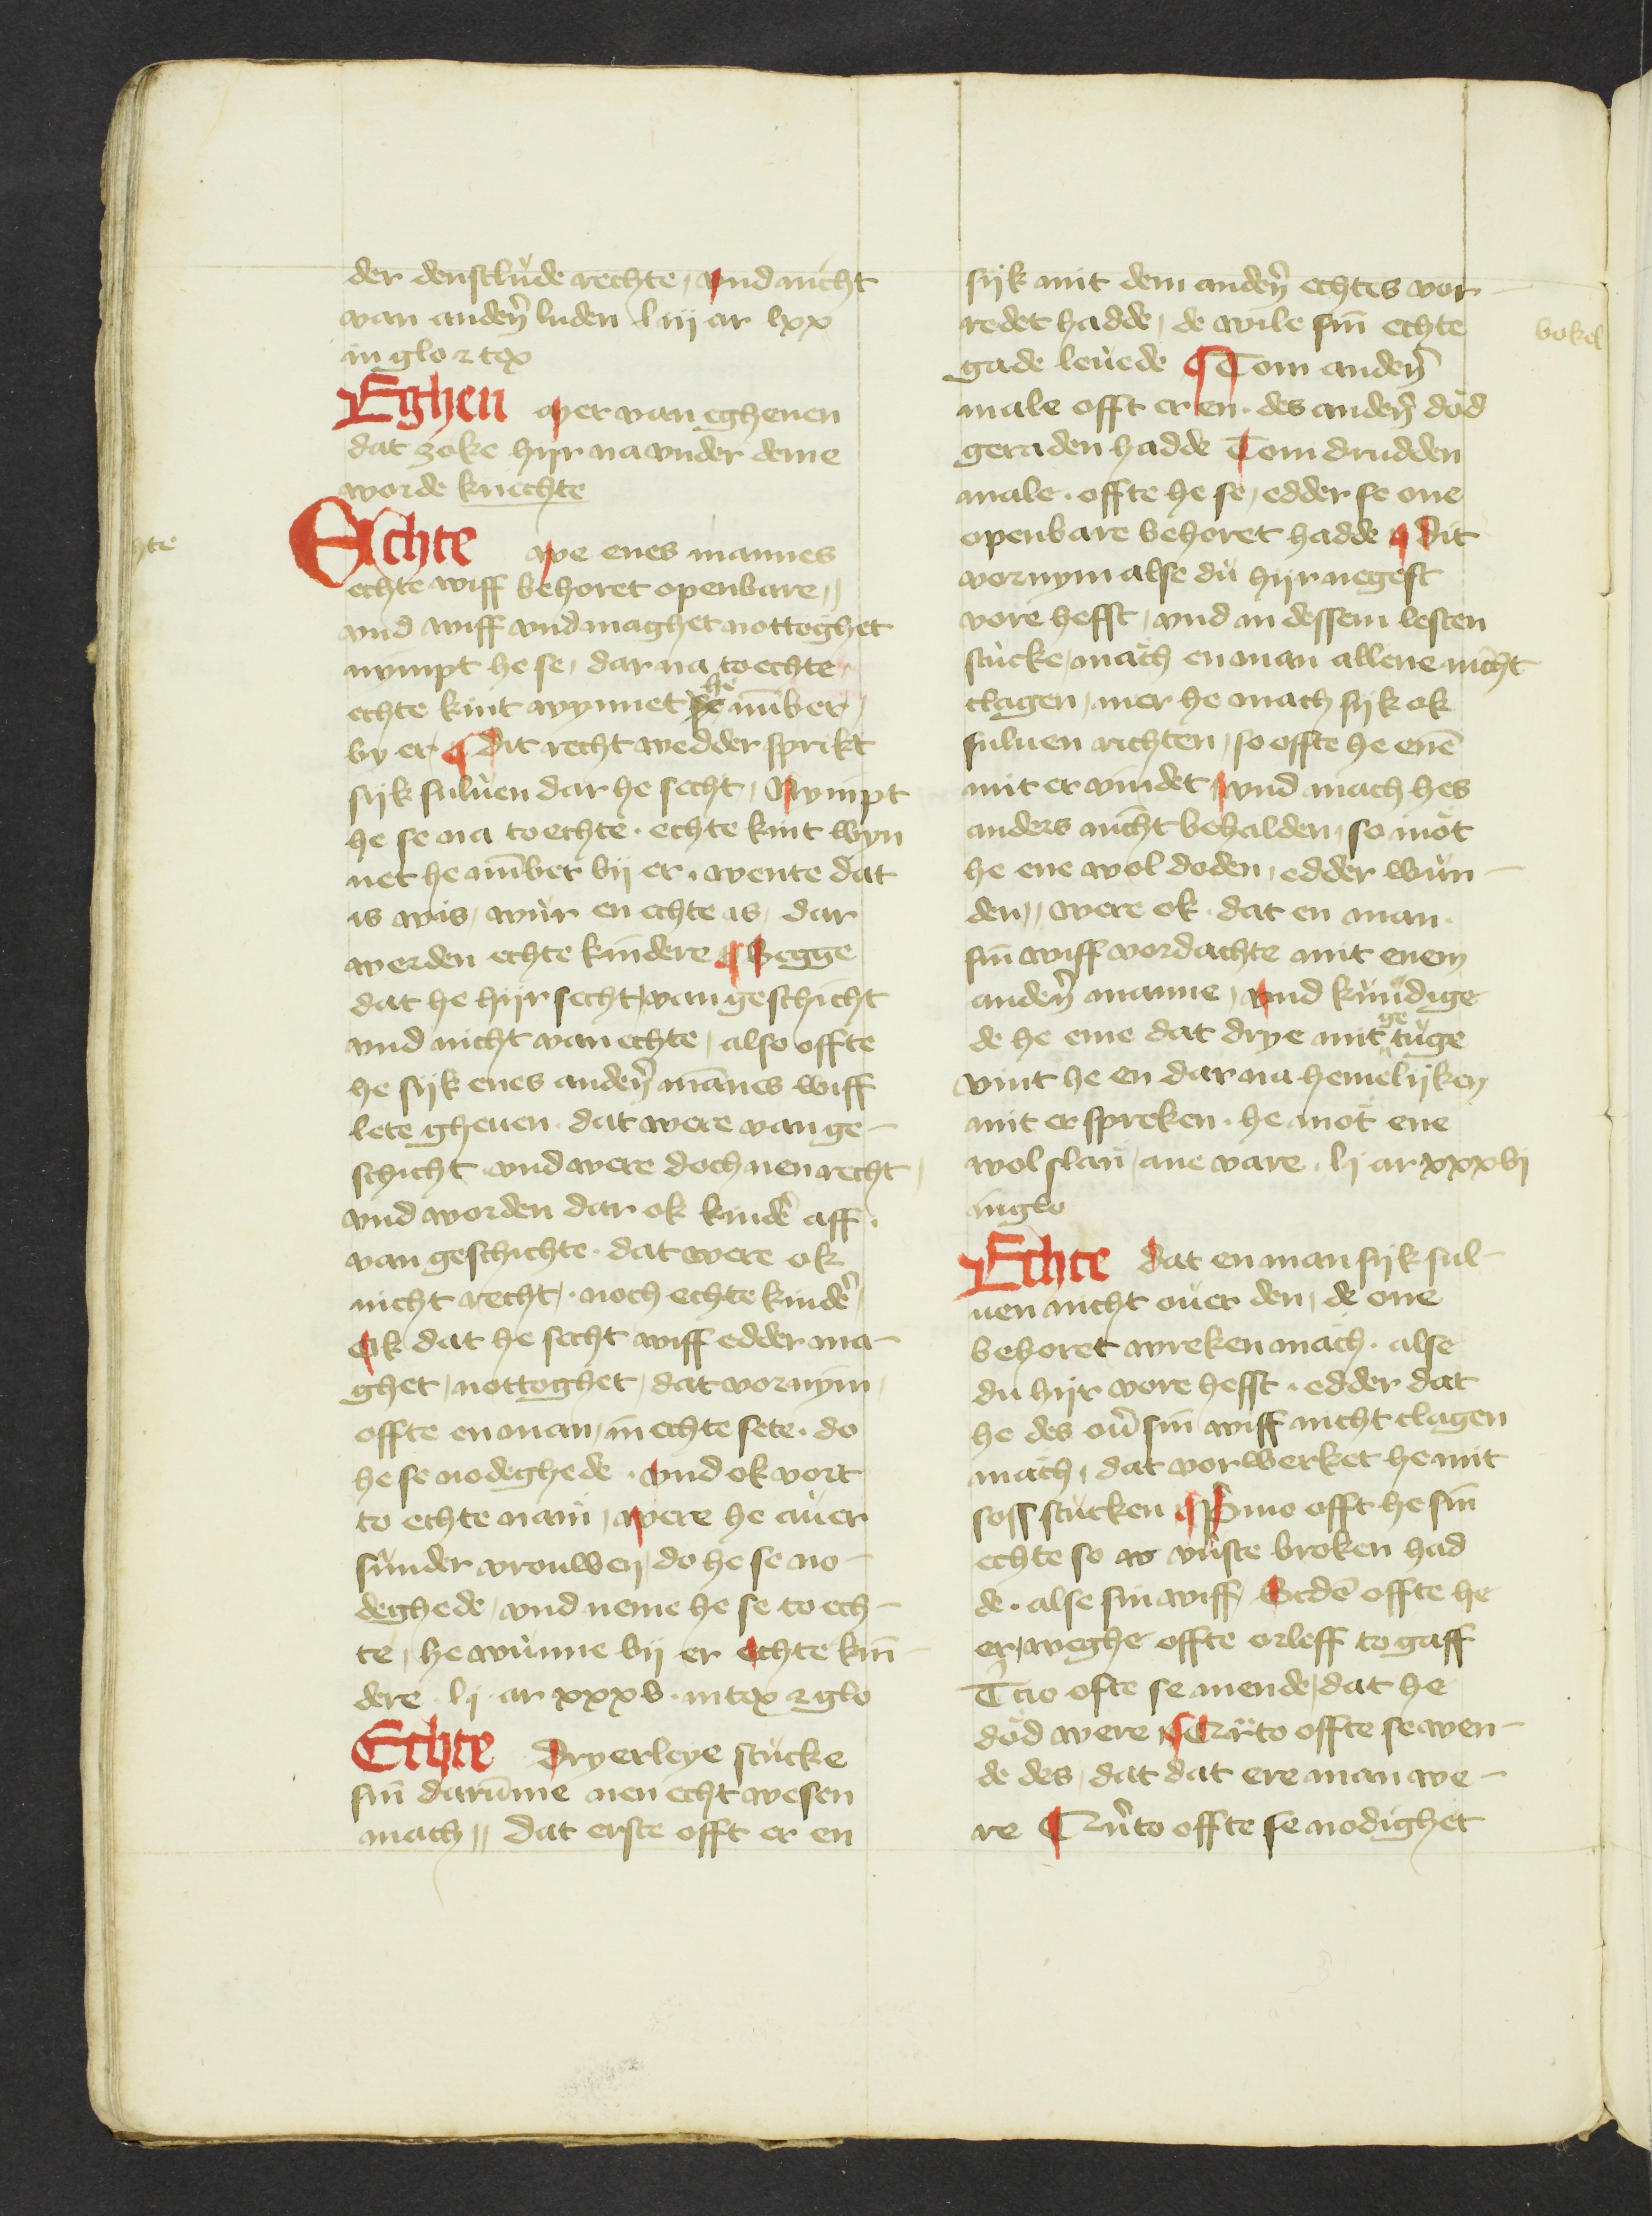 der denstlude rechte, vnd nicht
van andern̄ luden l iij ar lxx
in glo ⁊ tex
Eghen wer van eghenen
dat zoke hijr na vnder deme
worde knechte
Echte we enes mannes
echte wiff behoret openbare,,
vnd wiff vnd maghet nottoghet
nympt he se, dar na to echte
echte kint wynnet he nūber,
by er, ¶ Dit recht wedder sprikt
sijk suluen dar he secht, Nympt
he se na to echte. echte kint wyn
net he nūber bij er. wente dat
is wis, wur en echte is, dar
werden echte kindere ¶ Segge
dat he hijr secht, van geschicht
vnd nicht van echte, also offte
he sijk enes anderꝰ mānes wiff
lete gheuen. dat were van ge-
schicht vnd were doch nen recht,
vnd worden dar ok kinderꝰ aff.
van geschichte. dat were ok
nicht recht,. noch echte kinderꝰ,
Ok dat he secht wiff edder ma-
ghet, nottoghet, dat vornym,
offte en man, in echte sete. do
he se nodeghede. vnd ok vort
to echte nam, were he auer
sunder vrouwen, do he se no-
deghede, vnd neme he se to ech-
te, he wunne bij er echte kin-
dere. l j. ar xxxv. in tex ⁊ glo
Echte Dryerleye stucke
sin̄ darūme nen echt wesen
mach,, dat erste offt er en
sijk mit dem anderꝰ echtes vor-
redet hadde, de wile sin̄ echte
gade leuede ¶ Tom anderꝰ
male offt er en. des anderꝰ dod
geraden hadde Tom drudden
male. offte he se, edder se one
openbare behoret hadde ¶ dit
vornym alse du hijr negest
vore hefft, vnd in dessem lesten
stucke, mach en man allene nicht
clagen, mer he mach sijk ok
suluen richten, so offte he enē
mit er vindet, vnd mach hes
anders nicht behalden, so mot
he ene wol doden, edder wun-
den,, were ok. dat en man.
sin̄ wiff vordachte mit enem
anderꝰ manne, vnd kundige
de he eme dat drye mit getuge
vint he en dar na hemelijken
mit er spreken. he mot ene
wol slan, ane vare. l j ar xxxvj
in glo
Echte dat en man sijk sul-
uen nicht ouer den, de one
behoret wreken mach. alse
du hijr vore hefft. edder dat
he des ou̅ sin wiff nicht clagen
mach, dat vorwerket he mit
soss stucken ¶ Pmo offt he sin̄
echte so vuste broken had
de. alse sin wiff, Scdē offte he
er, weghe offte orleff to gaff
Tcio ofte se mende, dat he
dod were ¶ Qrto offte se wen-
de des, dat dat ere man we-
re ¶ Qn̄to offte se nodighet
bokel
hte